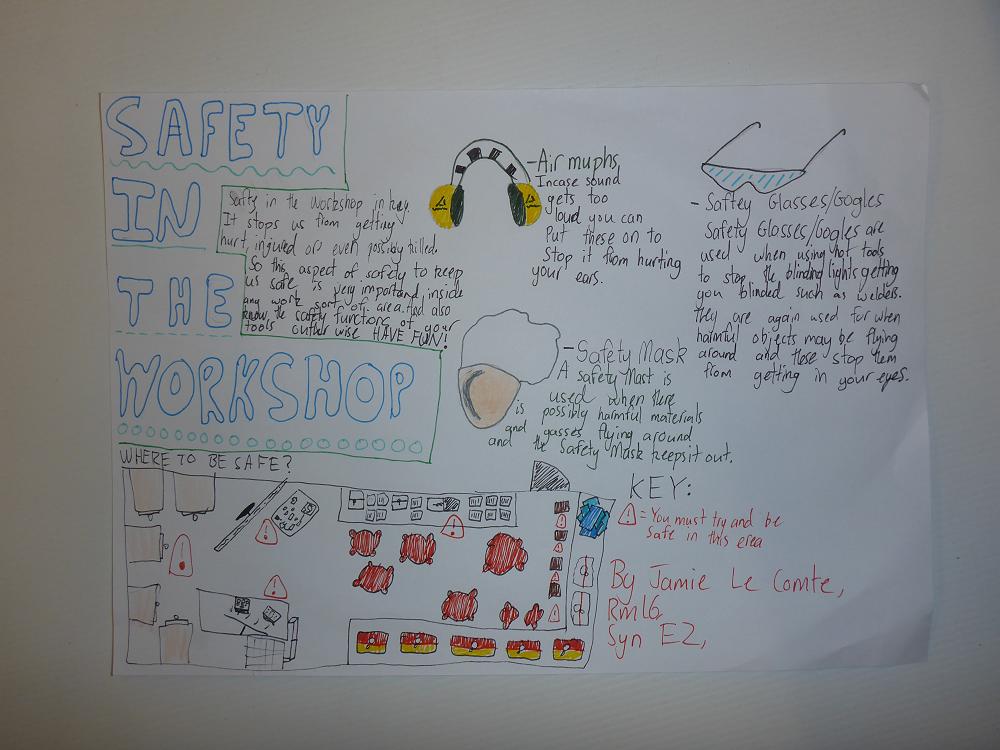 SAFETY
IN
THE
WORKSHOP
Safty in the workshop in key.
It stops us from getting
hurt, injured or even possibly killed.
So this aspect of safety to keep
us safe is very important inside
any work sort of area. And also
know the safety functions of your
tools outher wise HAVE FUN!
-Air muphs,
Incase sound
gets too
loud you can
Put these on to
stop it from hurting
your ears.
- Saftey Glasses/Gogles
Safety Glosses/Gogles are
used when using hot tools
to stop the blinding lights getting
you blinded such as welders.
They are again used for when
harmful objects may be flying
around and these stop them
from getting in your eyes.
-Safety Mask
A safety Mast is
used when there
is possibly harmful materials
and gasses flying around
and the Safety Mask keeps it out.
WHERE TO BE SAFE?
KEY:
! = You must try and be
safe in this erea
By Jamie Le Comte,
Rm16
Syn E2,